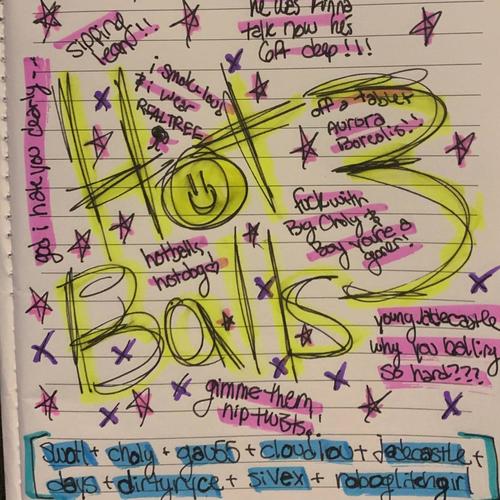 he was kinna
talk now he's
6A deep!!!
sipping
i smoke loud
& i wear
REALTREE
off a tablet
Aurora
Borealis!!
god i hate you clearly--
Hot 3
Balls
fuck with
Big Choly &
Boy you're a
goner!
hotbells,
hotdog♡
young jadecastle
why you balling
so hard???
gimme them
nip twists,
[swoll + choly + gau55 + cloudlow + jadecastle +
days + dirtyryce + sivex + roboglitchgirl]